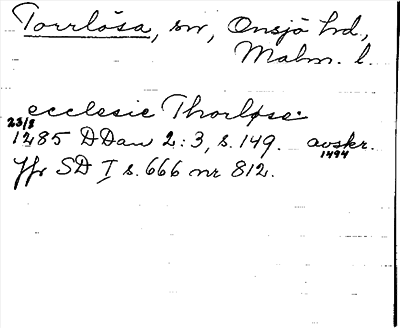 Torrlösa, sn, Onsjö hd,
Malm. l.
ecclesie Thorløse:
23/8
1285 DDan 2:3, s. 149. avskr.
1494
Jfr SD I s. 666 nr 812.